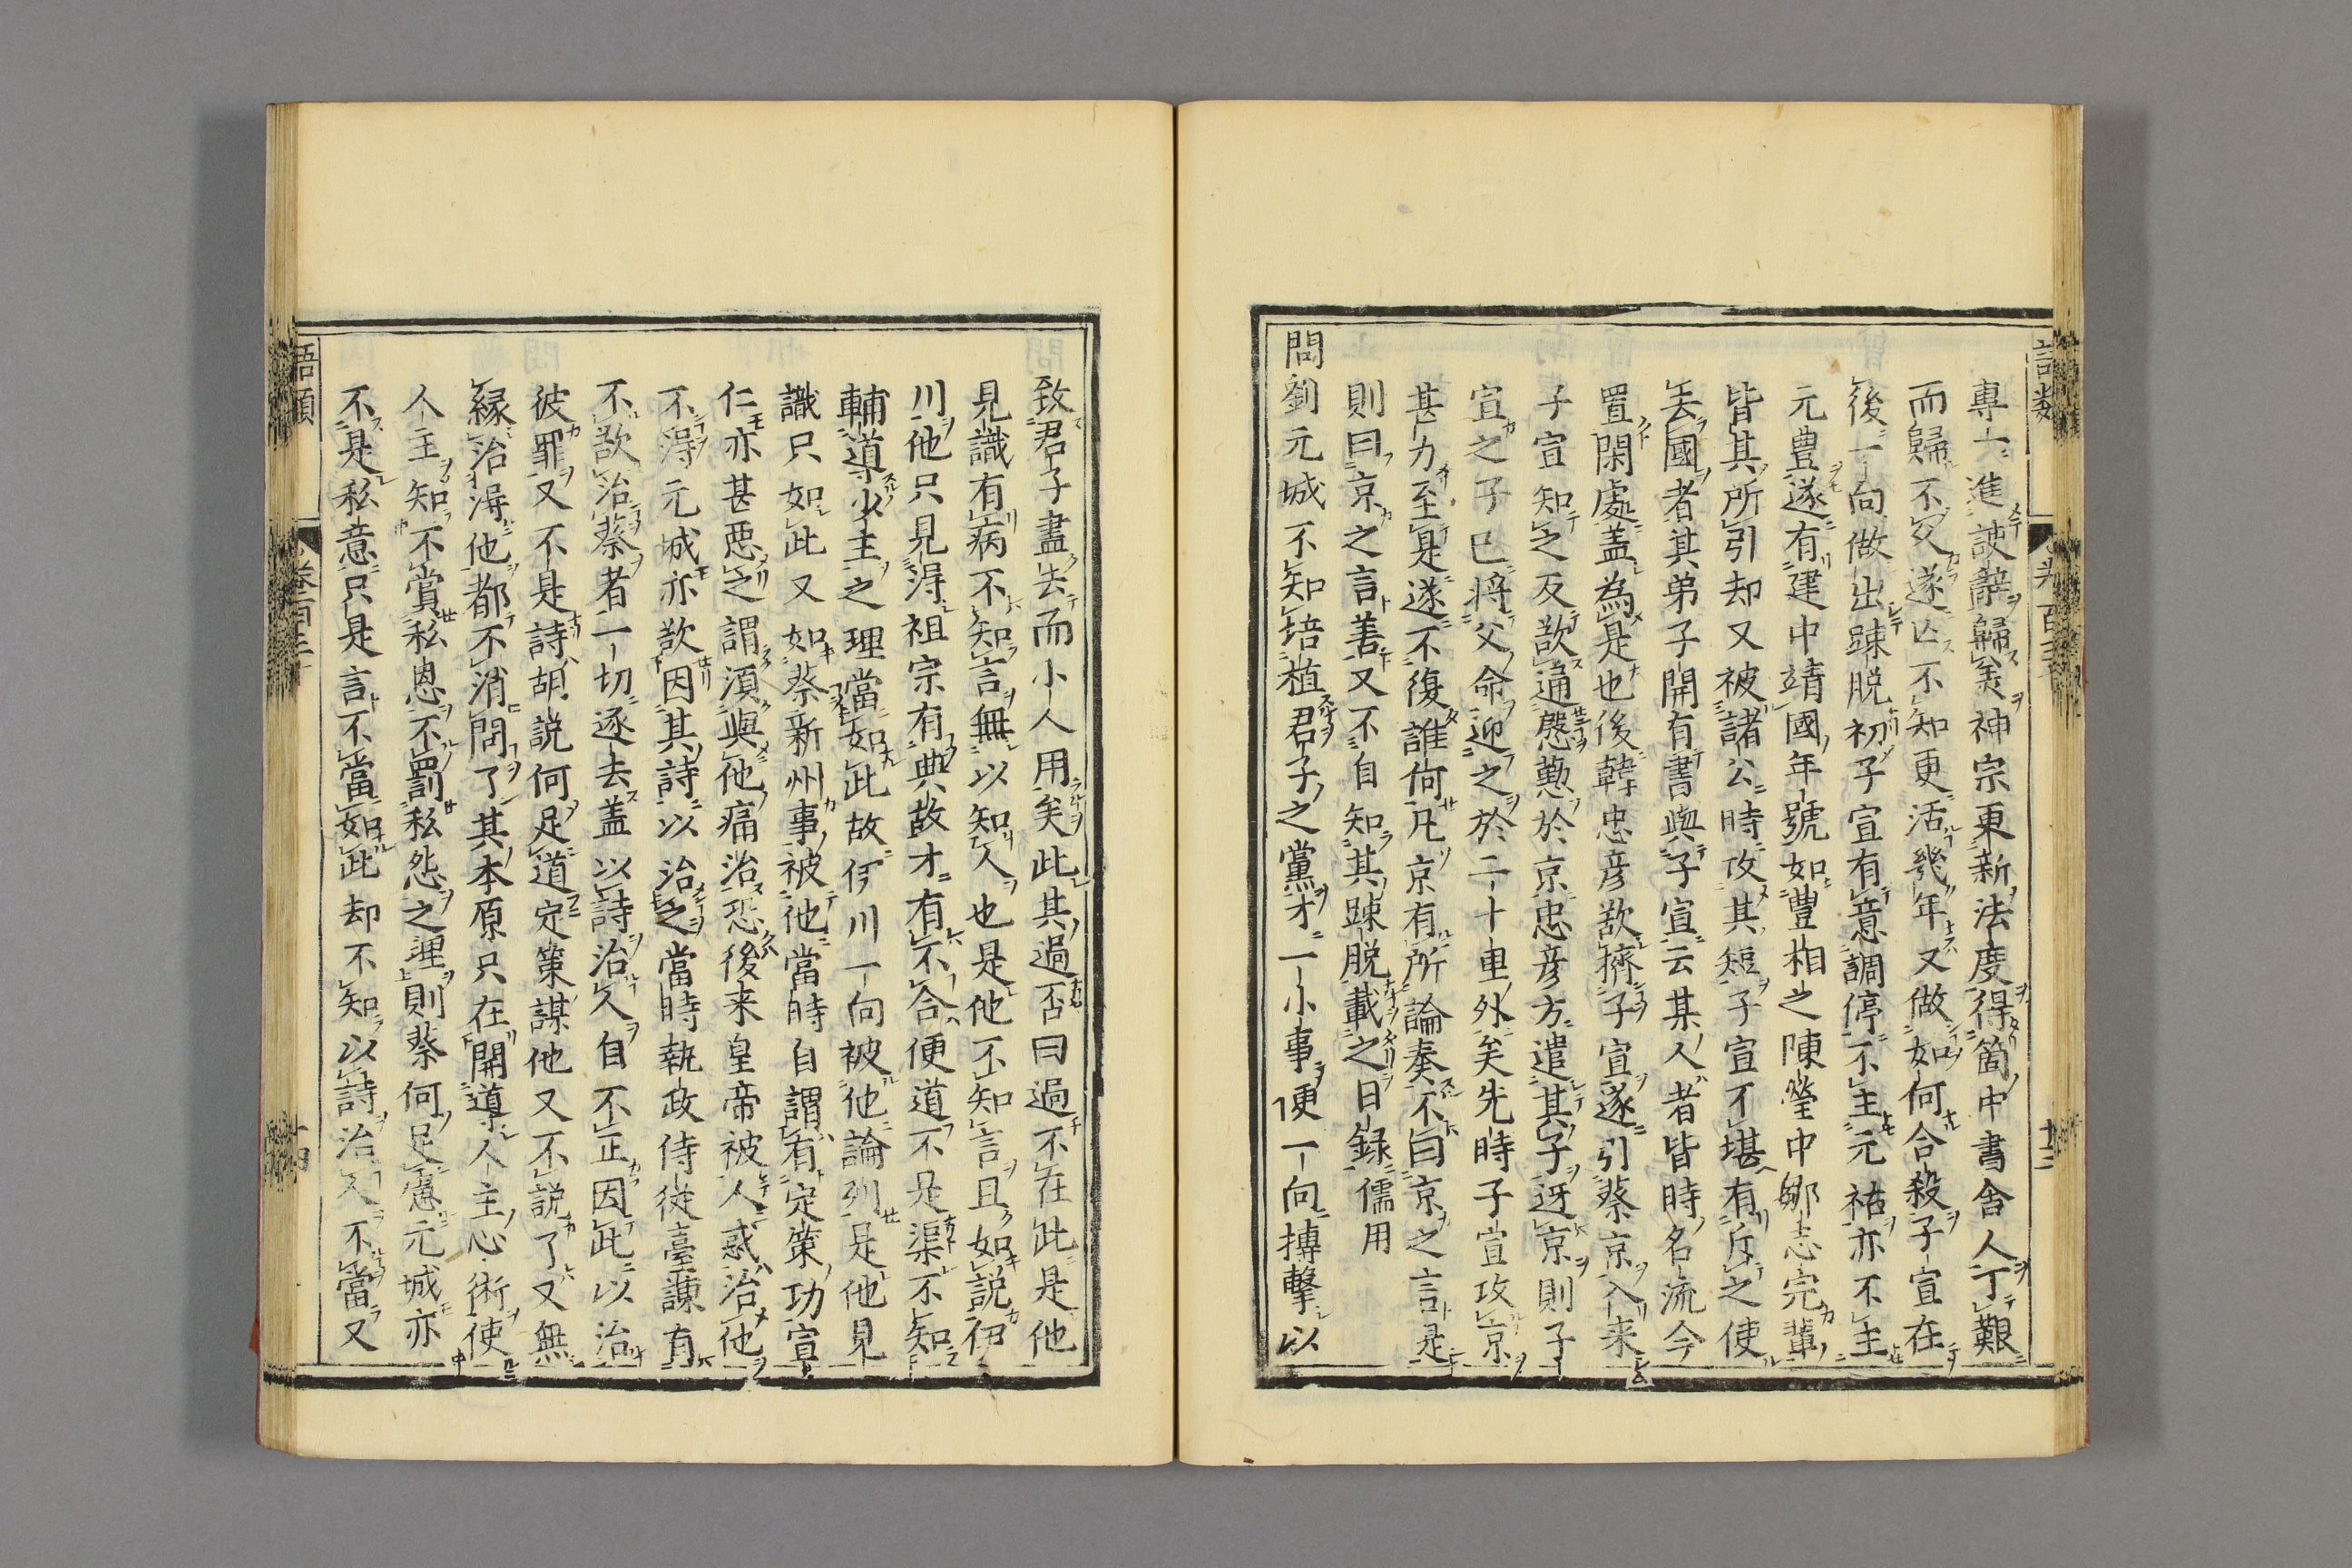 專一進諛辭歸美神宗更新法度得箇中書舍人丁艱
而歸不久遂亡不知更活幾年又做如何合殺子宣在
後一向做出踈脱初子宣有意調停不主元祐亦不主
元豊遂有建中靖國年號如豊相之陳瑩中鄒志完輩
皆其所引却又被諸公時攻其短子宣不堪有斥之使
去國者其弟子開有書與子宣云某人者皆時名流今
置閑處盖為是也後韓忠彦欲擠子宣遂引蔡京入来
子宣知之反欲通慇懃於京忠彦方遣其子迓京則子
宣之子已將父命迎之於二十里外矣先時子宣攻京
甚力至是遂不復誰何凡京有所論奏不曰京之言是
則曰京之言善又不自知其踈脱載之日録儒用
問劉元城不知培植君子之黨才一小事便一向搏擊以
致君子盡去而小人用矣此其過否曰過不在此是他
見識有病不知言無以知人也是他不知言且如説伊
川他只見得祖宗有典故才有不合便道不是渠不知
輔導少主之理當如此故伊川一向被他論列是他見
識只如此又如蔡新州事被他當時自謂有定策功宣
仁亦甚惡之謂須與他痛治恐後来皇帝被人惑治他
不得元城亦欲因其詩以治之當時執政侍從臺諫有
不欲治蔡者一切逐去盖以詩治人自不正因此以治
彼罪又不是詩胡説何足道定策謀他又不説了又無
縁治得他都不消問了其本原只在開導人主心術使
人主知不賞私恩不罰私怨之理則蔡何足慮元城亦
不是私意只是言不當如此却不知以詩治人不當又
語類
卷百三十